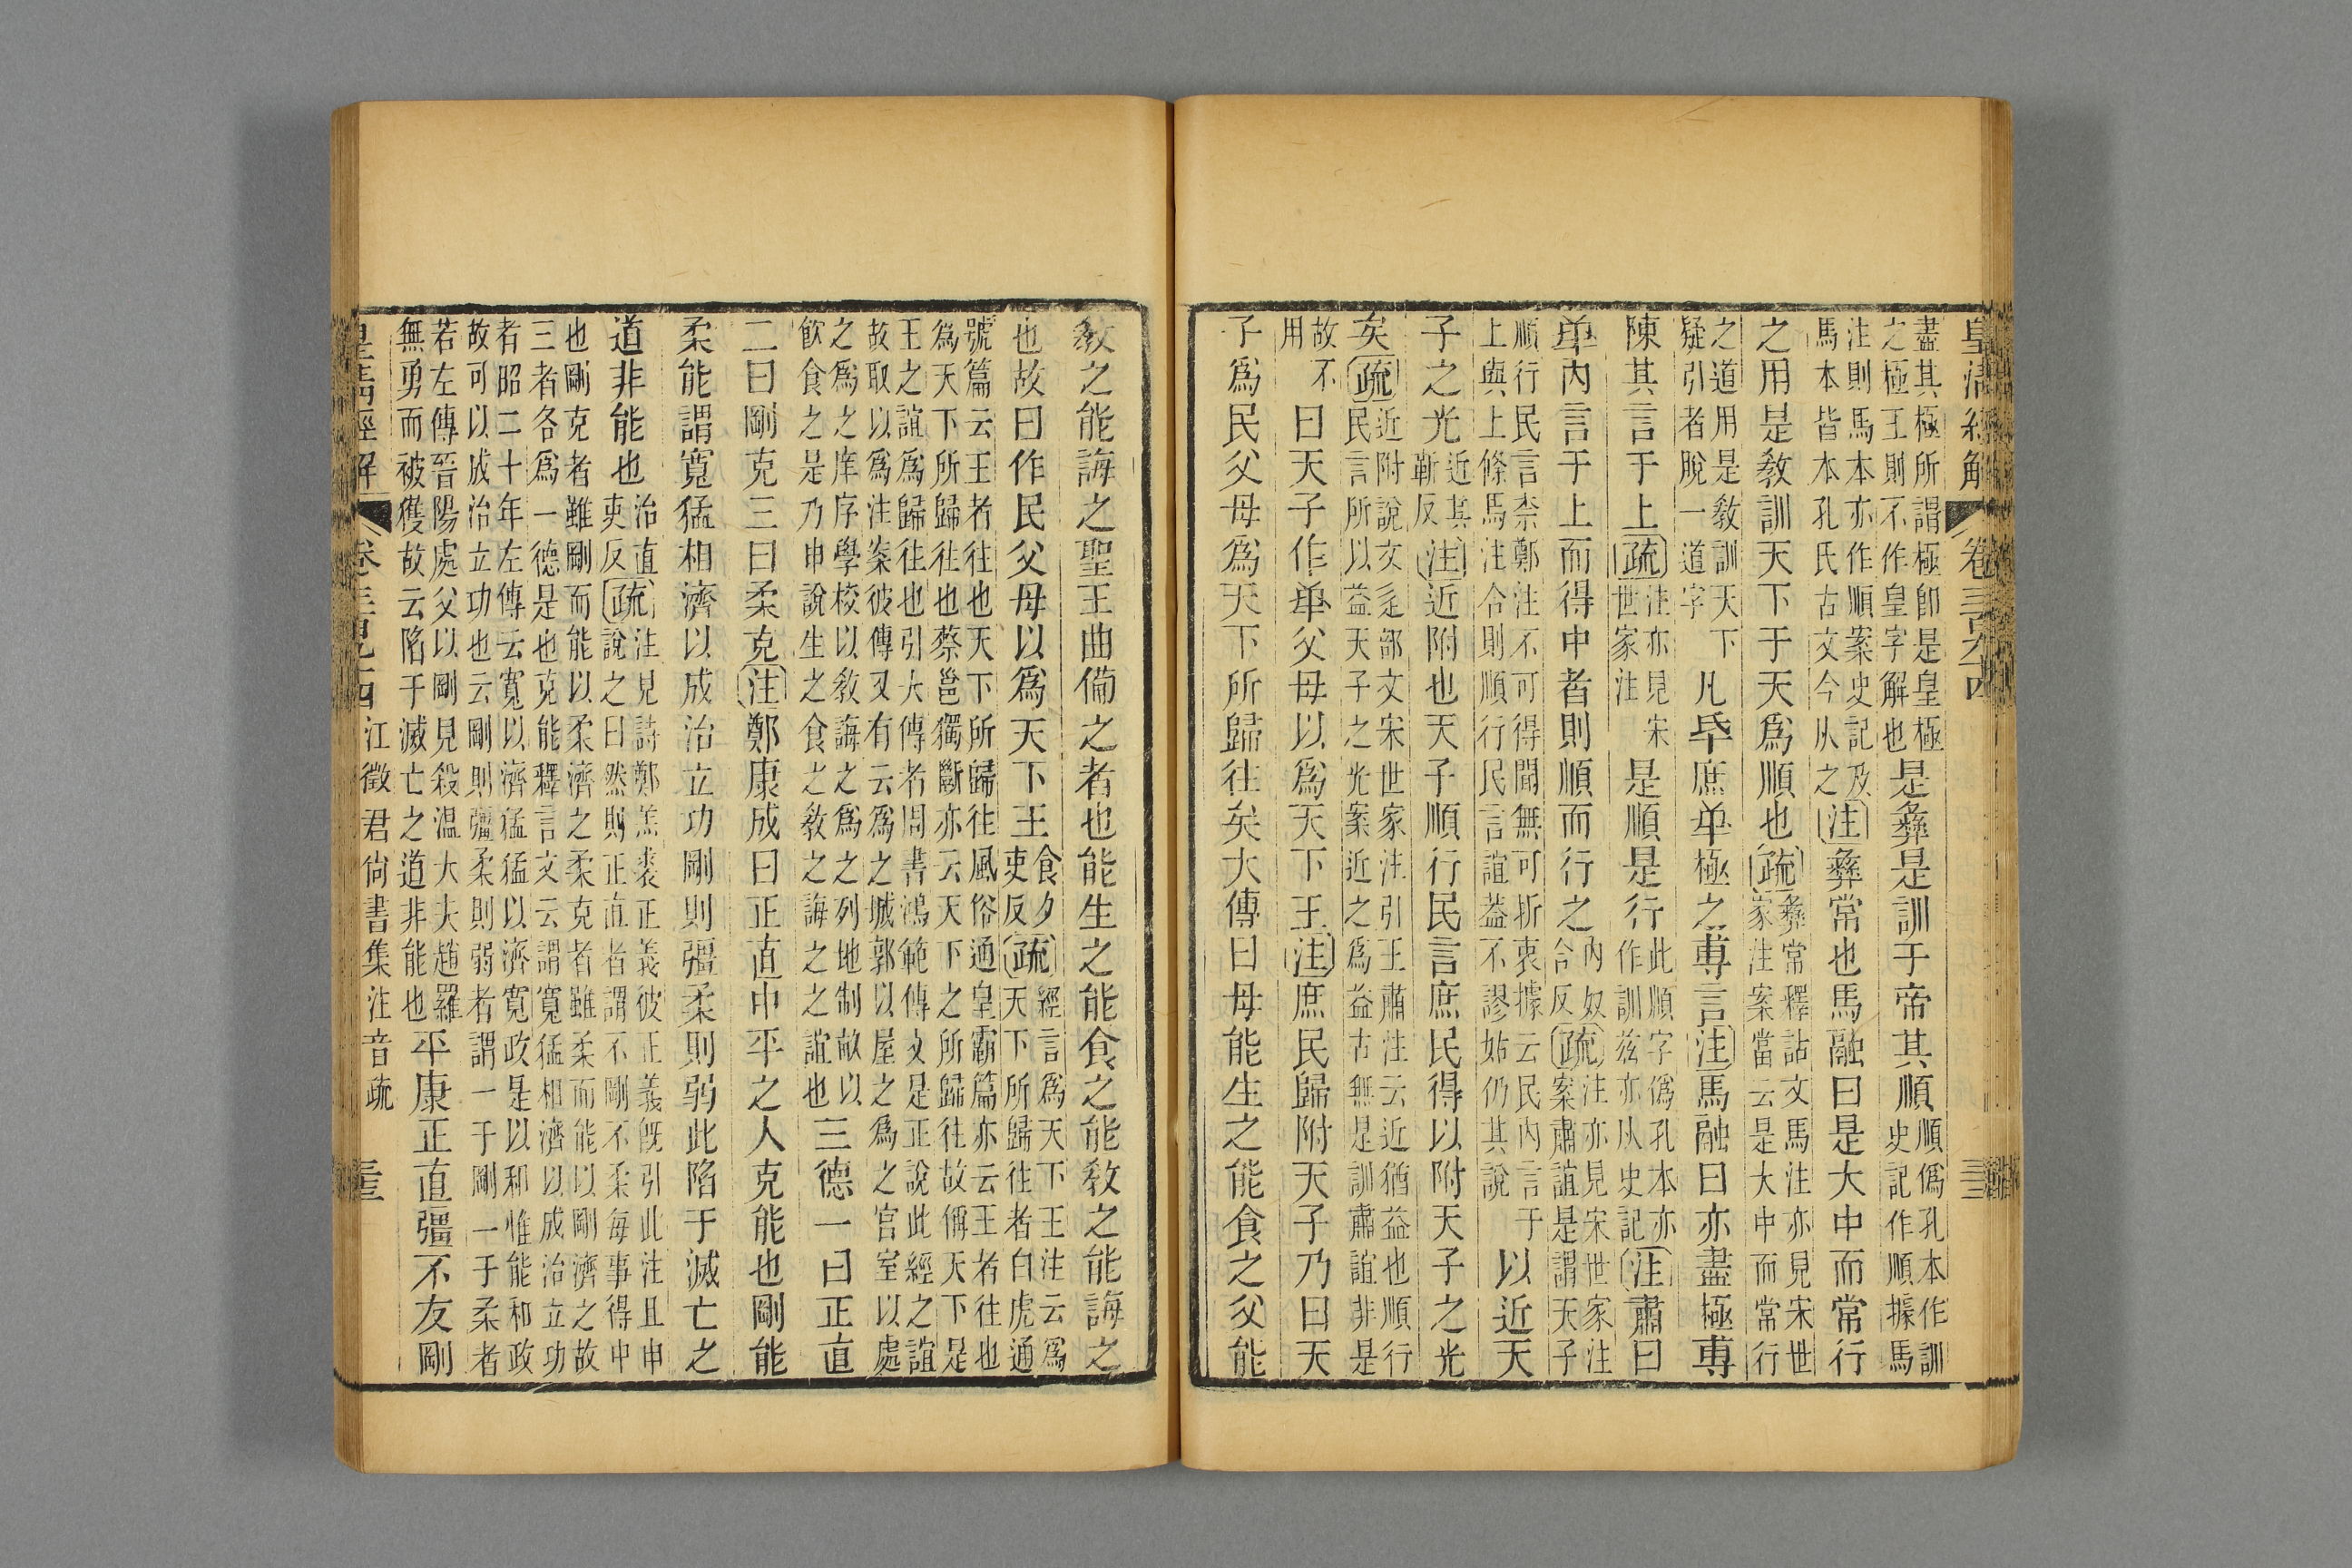 皇清經解 卷三百九十四
盡其極所謂極卽是皇極
之極王則不作皇字解也
是彝是訓于帝其順
順僞孔本作訓
史記作順據馬
注則馬本亦作順案史記及
馬本皆本孔氏古文今从之
注彝常也馬融曰是大中而常行
之用是敎訓天下于天爲順也疏
彝常釋詁文馬注亦見宋世
家注案當云是大中而常行
之道用是敎訓天下
疑引者脫一道字
凡氒庶單極之尃言注馬融曰亦盡極尃
陳其言于上疏
注亦見宋
世家注
是順是行
此順字僞孔本亦
作訓兹亦从史記
注肅曰
單內言于上而得中者則順而行之
內奴
合反
疏
注亦見宋世家注
案肅誼是謂天子
順行民言柰鄭注不可得聞無可折衷據云民內言于
上與上條馬注合則順行民言誼葢不謬姑仍其說
以近天
子之光
近其
靳反
注近附也天子順行民言庶民得以附天子之光
矣疏
近附說文辵部文宋世家注引王肅注云近猶益也順行
民言所以益天子之光案近之爲益古無是訓肅誼非是
故不
用
曰天子作單父毋以爲天下王注庶民歸附天子乃曰天
子爲民父毋爲天下所歸往矣大傳曰毋能生之能食之父能
敎之能誨之聖王曲備之者也能生之能食之能敎之能誨之
也故曰作民父毋以爲天下王
食夕
吏反
疏
經言爲天下王注云爲
天下所歸往者白虎通
號篇云王者往也天下所歸往風俗通皇霸篇亦云王者往也
爲天下所歸往也蔡邕獨斷亦云天下之所歸往故偁天下是
王之誼爲歸往也引大傳者周書鴻範傳文是正說此經之誼
故取以爲注案彼傳又有云爲之城郭以屋之爲之宮室以處
之爲之庠序學校以敎誨之爲之列地制畝以
飮食之是乃申說生之食之敎之誨之之誼也
三德一曰正直
二曰剛克三曰柔克注鄭康成曰正直中平之人克能也剛能
柔能謂寬猛相濟以成治立功剛則彊柔則弱此陷于滅亡之
道非能也
治直
吏反
疏
注見詩鄭羔裘正義彼正義旣引此注且申
說之曰然則正直者謂不剛不柔每事得中
也剛克者雖剛而能以柔濟之柔克者雖柔而能以剛濟之故
三者各爲一德是也克能釋言文云謂寬猛相濟以成治立功
者昭二十年左傳云寬以濟猛猛以濟寬政是以和惟能和政
故可以成治立功也云剛則彊柔則弱者謂一于剛一于柔者
若左傳晉陽處父以剛見殺温大夫趙羅
無勇而被獲故云陷于滅亡之道非能也
平康正直彊不友剛
江徵君尙書集注音疏